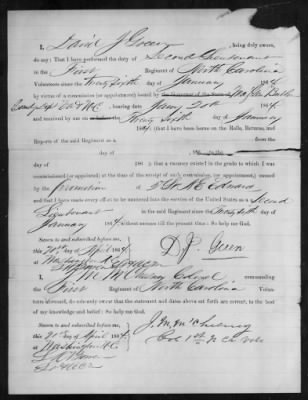 I, David J Green, being duly sworn,
do say: That I have performed the duty of Second Lieutenant
in the First Regiment of North Carolina
Volunteers since the Twenty Sixth day of January 1864
by virtue of a commission (or appointment) issued by
Comdg Dept Va & NC, bearing date Jany 20th 1864,
received by me on the Twenty Sixth day of January
1864; that I have been borne on the Rolls, Returns, and
Reports of the said Regiment as a
from the day of 186 , to the
day of 186 ; that a vacancy existed in the grade to which I was
commissioned (or appointed) at the date of the receipt of such commission, occasioned
by the Promotion of
and that I have made every effort to be mustered into the service of the United States as a Second
Lieutenant in the said Regiment since the Twenty Sixth day of
January 1864 without success till the present time: So help me God.
Sworn to and subscribed before me,
this 21st day of April 1864
at Washington N.C.
D. J. Green
I, Colonel commanding
the First Regiment of North Carolina Volun-
teers aforesaid, do solemnly swear that the statement and dates above set forth are correct, to the best
of my knowledge and belief: So help me God.
Sworn to and subscribed before me,
this 21st day of April 1864,
at Washington N.C.
Col 1st N Ca Vols